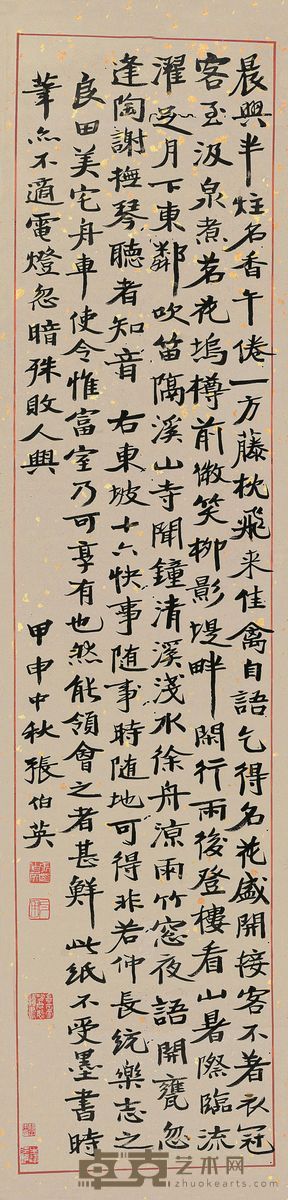 晨興半炷名香午倦一方藤枕飛来佳禽自語乞得名花盛開接客不著衣冠
客至汲泉煮茗花塢樽前微笑柳影堤畔閑行雨後登樓看山暑際臨流
濯足月下東鄰吹笛隔溪山寺聞鐘清溪淺水徐舟涼雨竹窓夜語開甕忽
逢陶謝撫琴聽者知音 右東坡十六快事隨事時隨地可得非若仲長統樂志之
良田美宅舟車使令惟富室乃可享有也然能領會之者甚鮮此紙不受墨書時
筆亦不適電燈忽暗殊敗人興
甲申中秋張伯英
卓克艺术网
zhuokearts.com